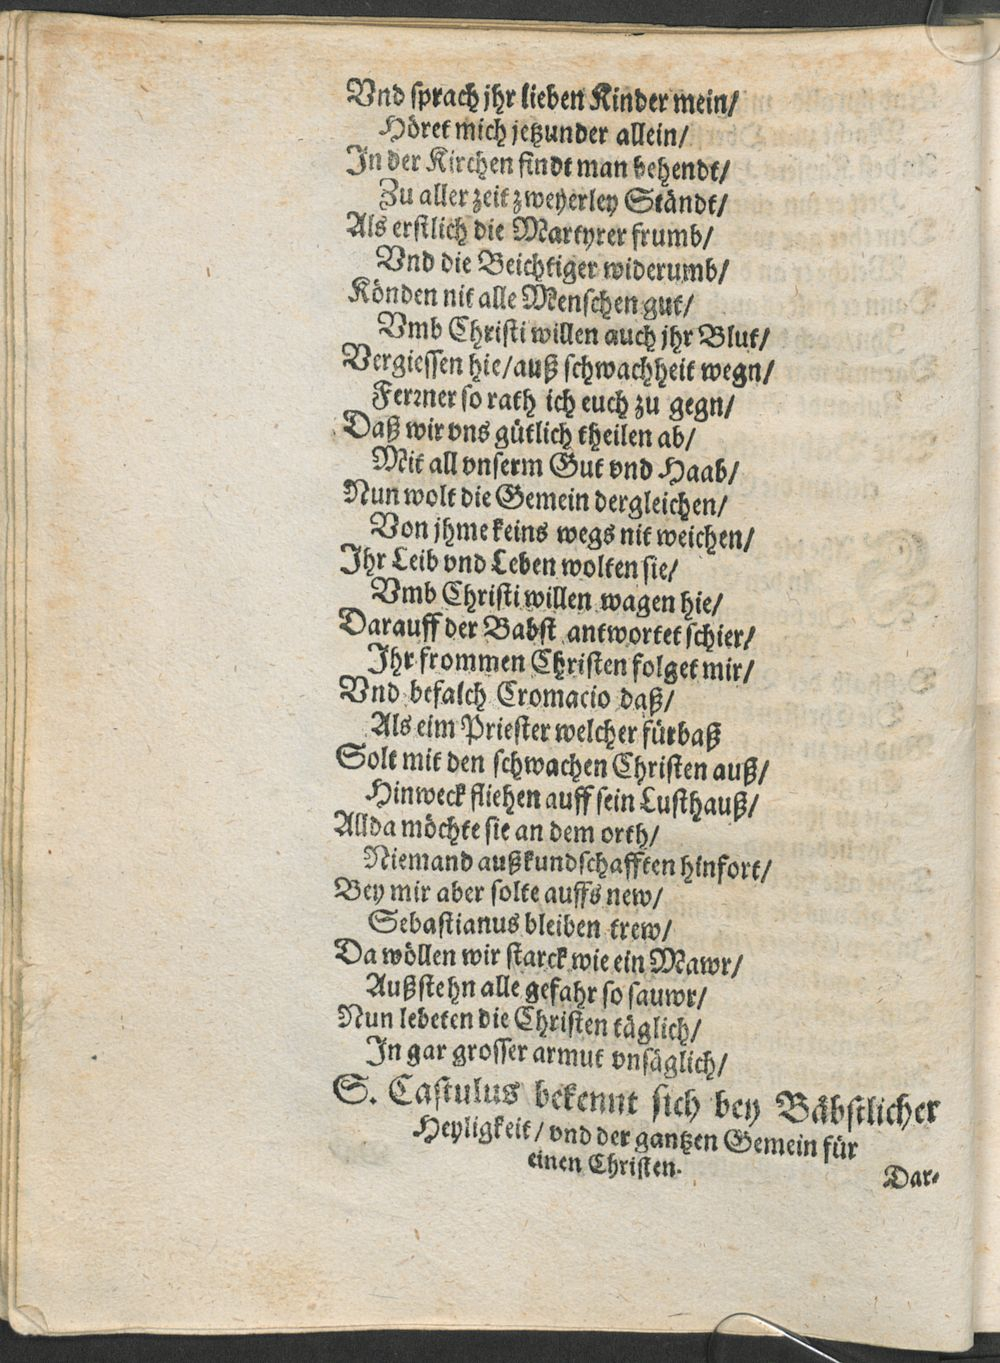 Vnd sprach jhr lieben Kinder mein/
Höret mich jetzunder allein/
In der Kirchen findt man behendt/
Zu aller zeit zweyerley Ständt/
Als erstlich die Martyrer frumb/
Vnd die Beichtiger widerumb/
Könden nit alle Menschen gut/
Vmb Christi willen auch jhr Blut/
Vergiessen hie/auß schwachheit wegn/
Ferrner so rath ich euch zu gegn/
Daß wir vns gütlich theilen ab/
Mit all vnserm Gut vnd Haab/
Nun wolt die Gemein dergleichen/
Von jhme keins wegs nit weichen/
Ihr Leib vnd Leben wolten sie/
Vmb Christi willen wagen hie/
Darauff der Babst antwortet schier/
Ihr frommen Christen folget mir/
Vnd befalch Cromacio daß/
Als eim Priester welcher fürbaß
Solt mit den schwachen Christen auß/
Hinweck fliehen auff sein Lusthauß/
Allda möchte sie an dem orth/
Niemand außkundschafften hinfort/
Bey mir aber solte auffs new/
Sebastianus bleiben trew/
Da wöllen wir starck wie ein Mawr/
Außstehn alle gefahr so sauwr/
Nun lebeten die Christen täglich/
In gar grosser armut vnsäglich/
S. Castulus bekennt sich bey Bäbstlicher
Heyligkeit/ vnd der gantzen Gemein für
einen Christen.
Dar-